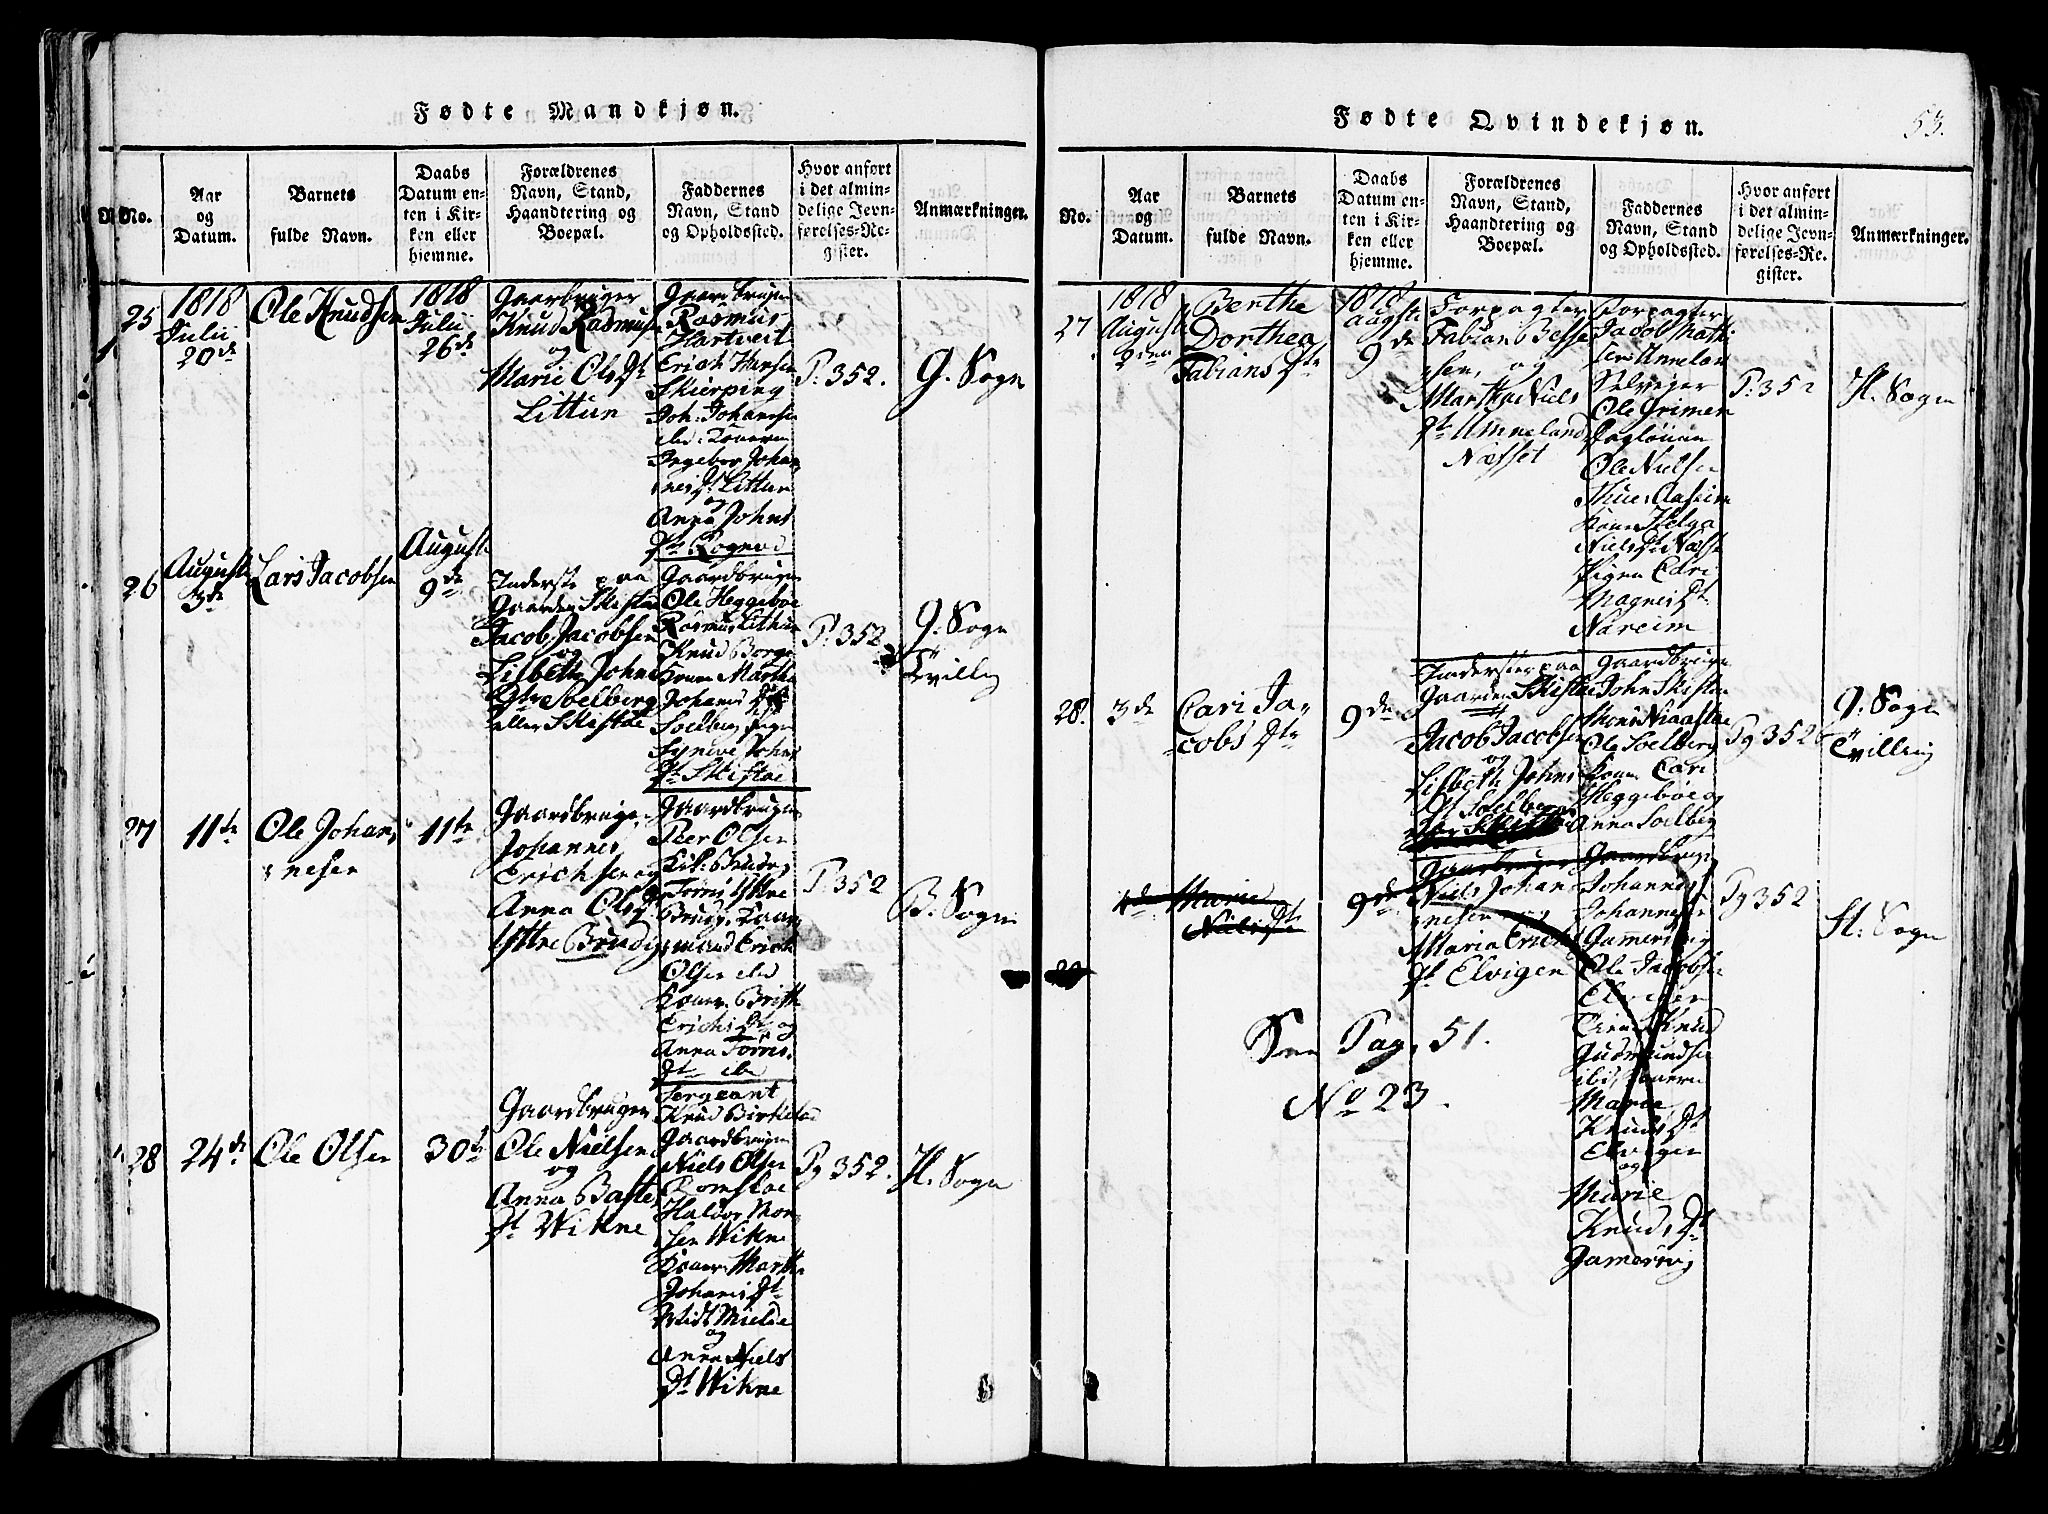 Fødte Mandkjøn.
No.
Aar
og
Datum.
Barnets
fulde Navn.
Daabs
Datum en-
ten i Kir-
ken eller
hjemme.
Forældrenes
Navn, Stand,
Haandtering og
Boepæl.
Faddernes
Navn, Stand
og Opholdssted.
Hvor anført
i det almin-
delige Jevn-
førelses-Re-
gister.
Anmærkninger.
25
1818
Julii
20de
Ole Knudsen
1818
Julii
26de
Gaardbruger
Knud Rasmusen
og
Marie Ols Dt
Littun
Gaardbruger
Rasmus
Hartveit
Erich Hansen
Skierping
Joh: Johannsen
ibd: Konerne
Ingebor Johan
nes Dt Littun
og
Anna Johns
Dt
P: 352.
G. Sogn
26
Augusti
3de
Lars Jacobsen
Augusti
9de
Inderste paa
Gaarden Skistae
Jacob Jacobsen
og
Lisbeth Johns
Dtr Soelberg
eller Skistae
Gaardbruger
Ole Heggeboe
Rasmus Littun
Knud Borge
Koner Martha
Johans Dt
Soelberg Pigen
Synneve Johns
Dt Skistae
P: 352
G. Sogn
Tvilling
27
11te
Ole Johan
nesen
11te
Gaardbruger
Johannes
Erichsen og
Anna Ols Dt
Yttre Brudvig
Gaardbruger
Peer Olsen
Erich
Olsen ibd
Koner: Britha
Erichs Dt og
Anna Torres
Dt ibd
P. 352
B. Sogn
28
24de
Ole Olsen
30te
Gaardbruger
Ole Nielsen
og
Anna Baste
Dt Wikne
Sergeant
Knud Birkeland
Gaardbruger
Niels Olsen
Romsloe
Haldor Mon
sen Wikne
Koner: Martha
Johanis Dt
Midt Mielde
og
Anna Niels
Dt Wikne
Pg 352.
H. Sogn
Fødte Qvindekjøn.
53.
No.
Aar
og
Datum.
Barnets
fulde Navn.
Daabs
Datum en-
ten i Kir-
ken eller
hjemme.
Forældrenes
Navn, Stand,
Haandtering og
Boepæl.
Faddernes
Navn, Stand
og Opholdssted.
Hvor anført
i det almin-
delige Jevn-
førelses-Re-
gister.
Anmærkninger.
27
1818
Augusti
2den
Berthe
Dorthea
Fabians Dtr
1818
Augsti
9de
Forpagter
Fabian Besse
sen, og
Martha Niels
Dt Unneland
Næsset
Forpagter
Jacob Math
sen Unneland
Selveger
Ole Grimen
Ole Nielsen
Koner Helga
Niels Dt Næsse
Pigen Cari
Magnes Dt
Nareim
P: 352
H. Sogn
28.
3de
Cari Ja
cobs Dtr
9de
Inderste paa
Gaarden Skistae
Jacob Jacobsen
og
Lisbeth Johns
Dt Soelberg
Gaardbruger
John Skistae
Ole Soelberg
Koner Cari
Heggeboe og
Anna Soelberg
Pg 352
G. Sogn
Tvilling
29
4de
Marie
Niels Dt
9de
Gaardbruger
Niels Johan
nesen og
Maria Erichs
Dt Elvigen
Gaardbruger
Johannes
Johannesen
Gamersvig
Ole Jacobsen
Elvigen
Knud
Gudmundsen
ibd Konerne
Marie
Knuds Dt
Elvigen
og
Marie
Knuds Dt
Gamersvig
Pg 352
H. Sogn
See Pag. 51.
No 23.